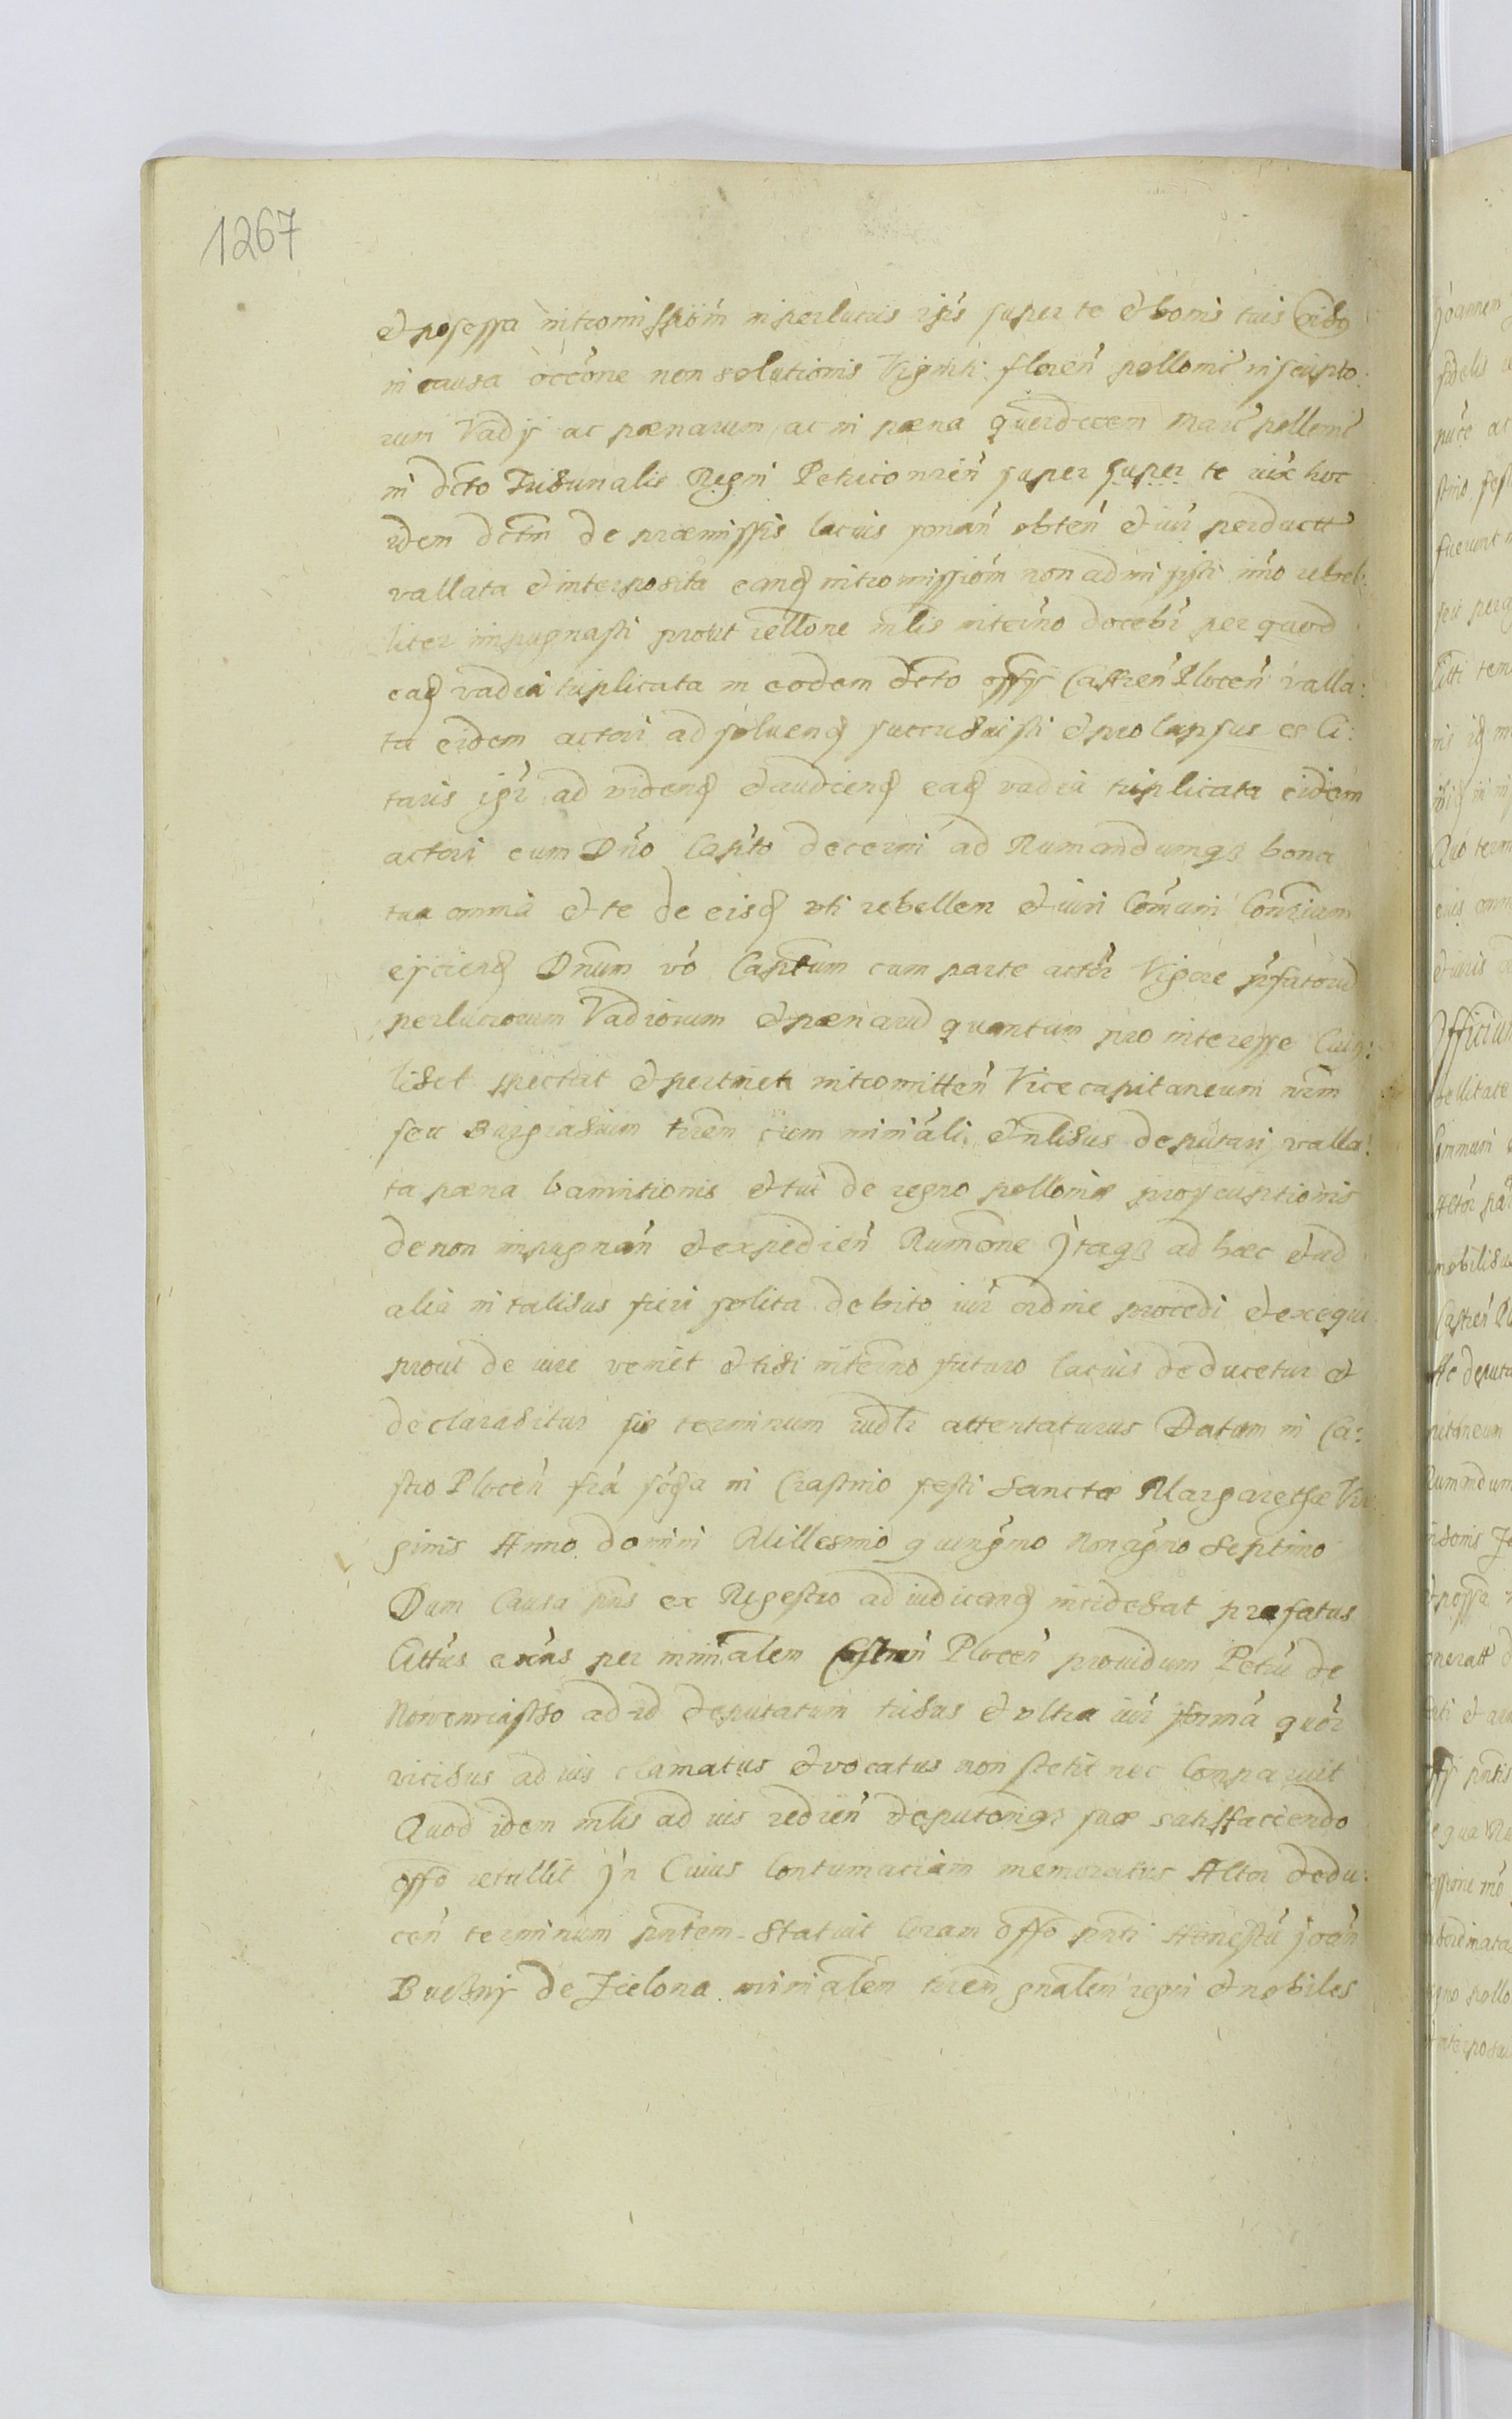 1267
et possessa intromissiom in perlucris ipsis super te et bonis tuis
in causa occone non solutionis Viginti floren pollonic inscripto:
rum Vadij ac pœnarum ac in pœna querdecem Marc pollonic
in dcto Tribunalis Regni Petricovien super super te iux hoc
idem dctm de præmissis lacius sonan obten et iur perductt
vallata et interposita eandq intromissiom non admisisti imo rebel:
liter impugnasti prout rellone mlis in terino docebr per quod
eadq vadia triplicata in eodem dcto offij Castren Plocen valla:
ta eidem actori ad soluendq succubuisti et prolapsus es Ci:
taris igr ad videndq et audiendq eadq vadia triplicata eidem
actori cum Dno Capto decerni ad Rumandumqz bona
tua omnia et te de eisdq vti rebellem et iuri Comuni Contrium
eijciendq Dnum vo Captum cum parte actor Vigore prfatorum
perlucrorum Vadiorum et pœnarum quantum pro interesse Cuiq:
libet spectat et pertinet intromitten Vicecapitaneum vrm
seu Burgrabium trem cum miniali et nlibus deputari valla:
ta pœna bannitionis et tui de regno polloniæ proscriptionis
de non impugnan et expedien Rumone Itaqz ad hæc et ad
alia in talibus fieri solita debito iur ordine procedi et exequi
prout de iure veniet et tibi in termo futuro lacius deducetur et
declarabitur sis terminum iudlr attentaturus Datum in Ca:
stro Plocen fra scda in Crastino festi Sanctæ Margarethæ Vir
ginis Anno domini Millesimo quingmo Nonagmo Septimo
Dum Causa pns ex Regestro ad iudicandq incidebat præfatus
Cittus per minialem Castren Plocen prouidum Petru de
ad id deputatum tribus et vltra iur forma quor
vicibus ad ius clamatus et vocatus non stetit nec Comparuit
Quod idem mlis ad ius redien deputoniqz suæ satisffaciendo
offo retullit In Cuius Contumaciam memoratus Actor dedu:
cen terminum pntem Statuit Coram offo pnti Honestu Joan
de Zielona minialem trem gnalem regni et nobiles